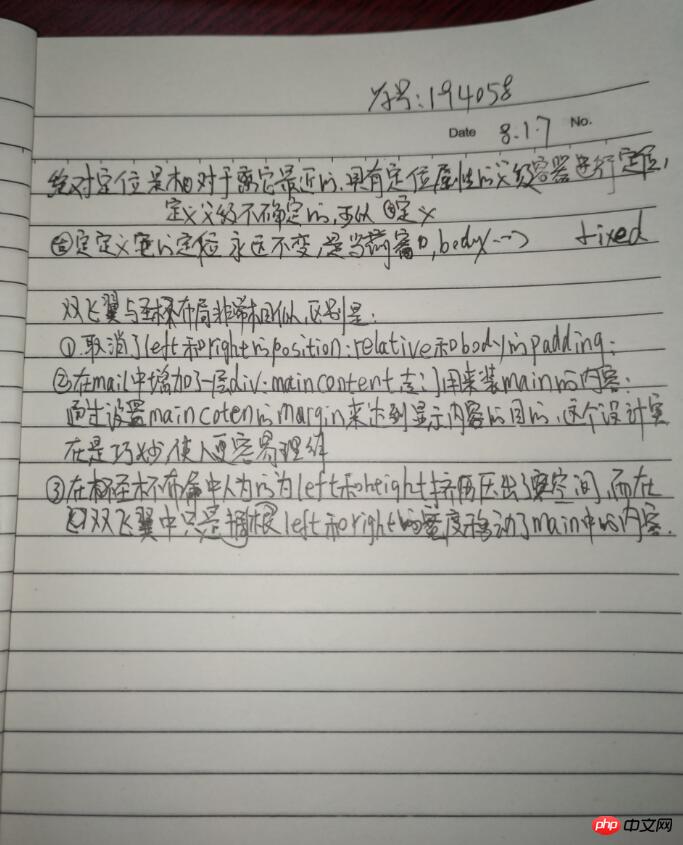 学号:194058
Date 8.1.7 No.
绝对定位是相对于离它最近的,具有定位属性的父级容器进行定位,
定义父级不确定的,可以自定义
固定定义定位永远不变,是当前窗口,body fixed
双飞翼与圣杯布局非常相似,区别是:
①.取消了left和right的position:relative和body的padding;
②在mail中增加了一层div:maincontent,专门用来装main的内容;
通过设置maincoten的margin来达到显示内容的目的,这个设计实
在是巧妙,使人更容易理解
③在圣杯布局中人为的为left和right挤压出了空间,而在
双飞翼中只是根left和right的宽度移动了main中的内容.
php 中文网